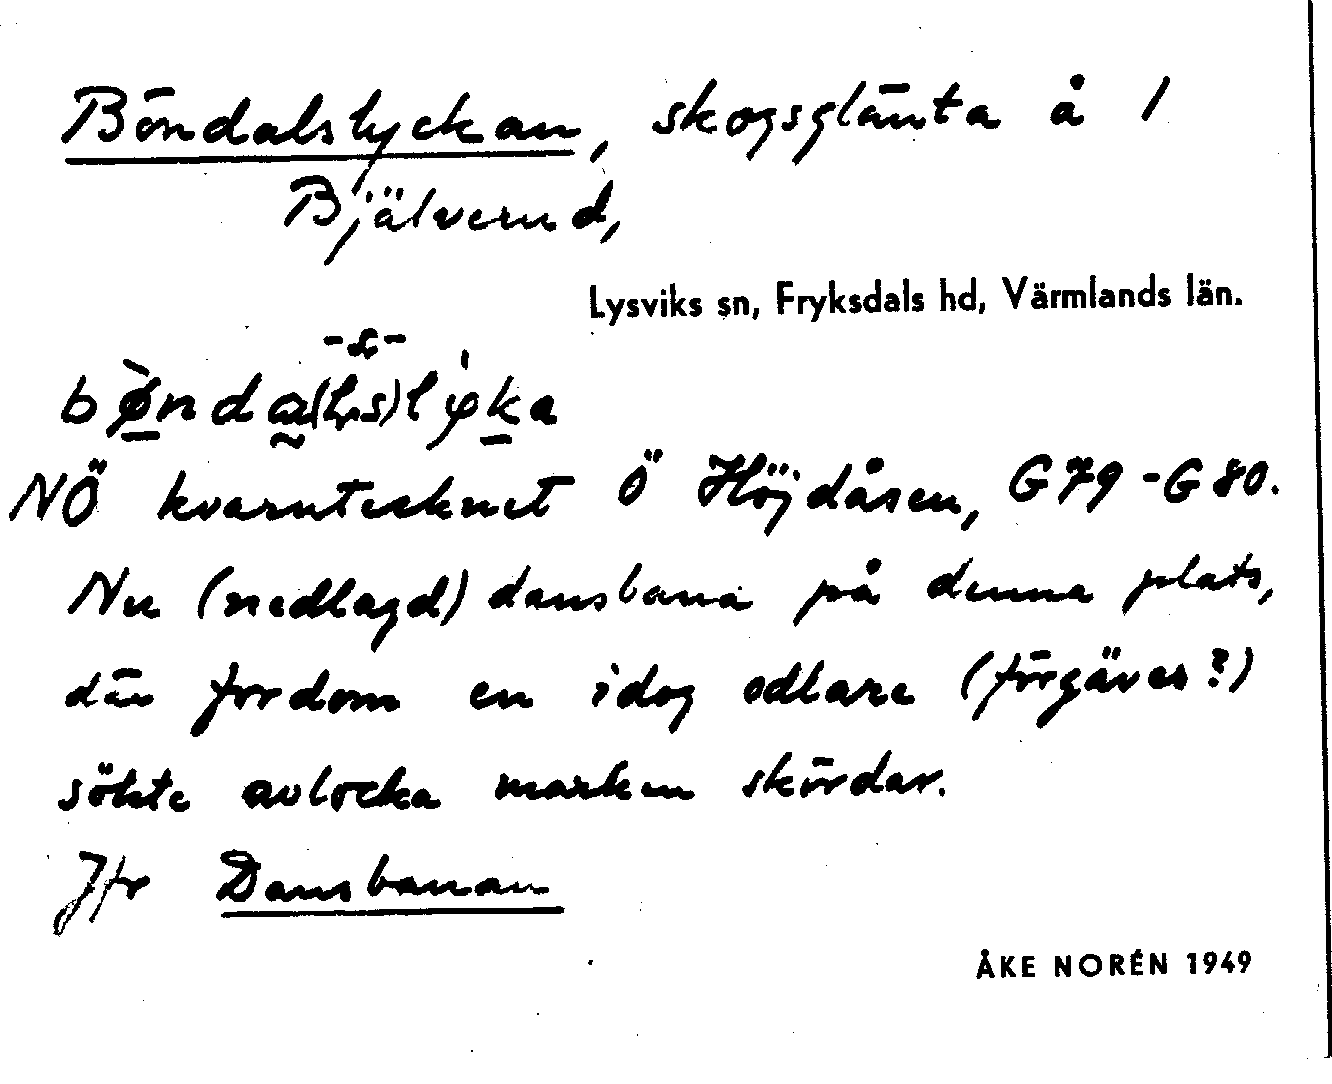 Böndalslyckan, skogsglänta å 1
Bjälverud,
Lysviks sn, Fryksdals hd, Värmlands län.
NÖ kvarntecknet Ö Höjdåsen, G79-G80.
Nu (nedlagd) dansbana på denna plats,
där fordom en idog odlare (förgäves?)
sökte avlocka marken skördar.
Jfr Dansbanan
ÅKE NORÉN 1949